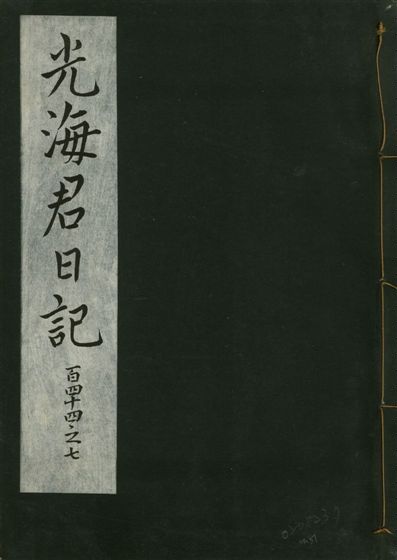 光海君日記
百四十四之七